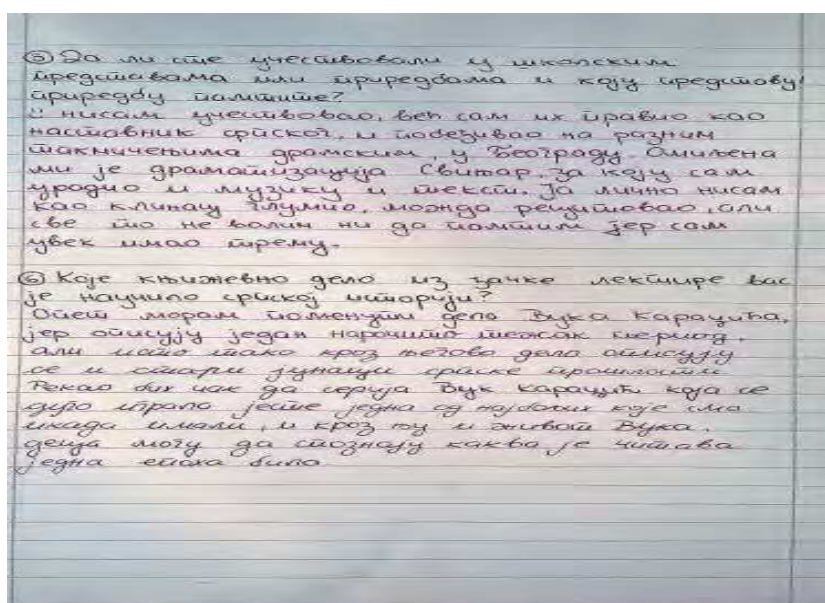 ⑤ Да ли сте учествовали у школским
представама или приредбама и коју представу/
приредбу памтите?
нисам учествовао, већ сам их правио као
наставник српског, и побеђивао на разним
такмичењима драмским, у Београду. Омиљена
ми је драматизација Свињар, за коју сам
урадио и музику и текст. Ја лично нисам
као клинац глумио, можда рецитовао, али
све то не волим ни да памтим јер сам
увек имао трему.
⑥ Које књижевно дело из ђачке лектире вас
је научило српској историји?
Опет морам поменути дела Вука Караџића,
јер описују један нарочито тежак период,
али исто тако кроз његова дела описују
се и стари јунаци српске прошлости.
Рекао бих чак да серија Вук Караџић која се
дуго играла јесте једна од најбољих које смо
икада имали, и кроз њу и живот Вука,
деца могу да спознају каква је читава
једна епоха била